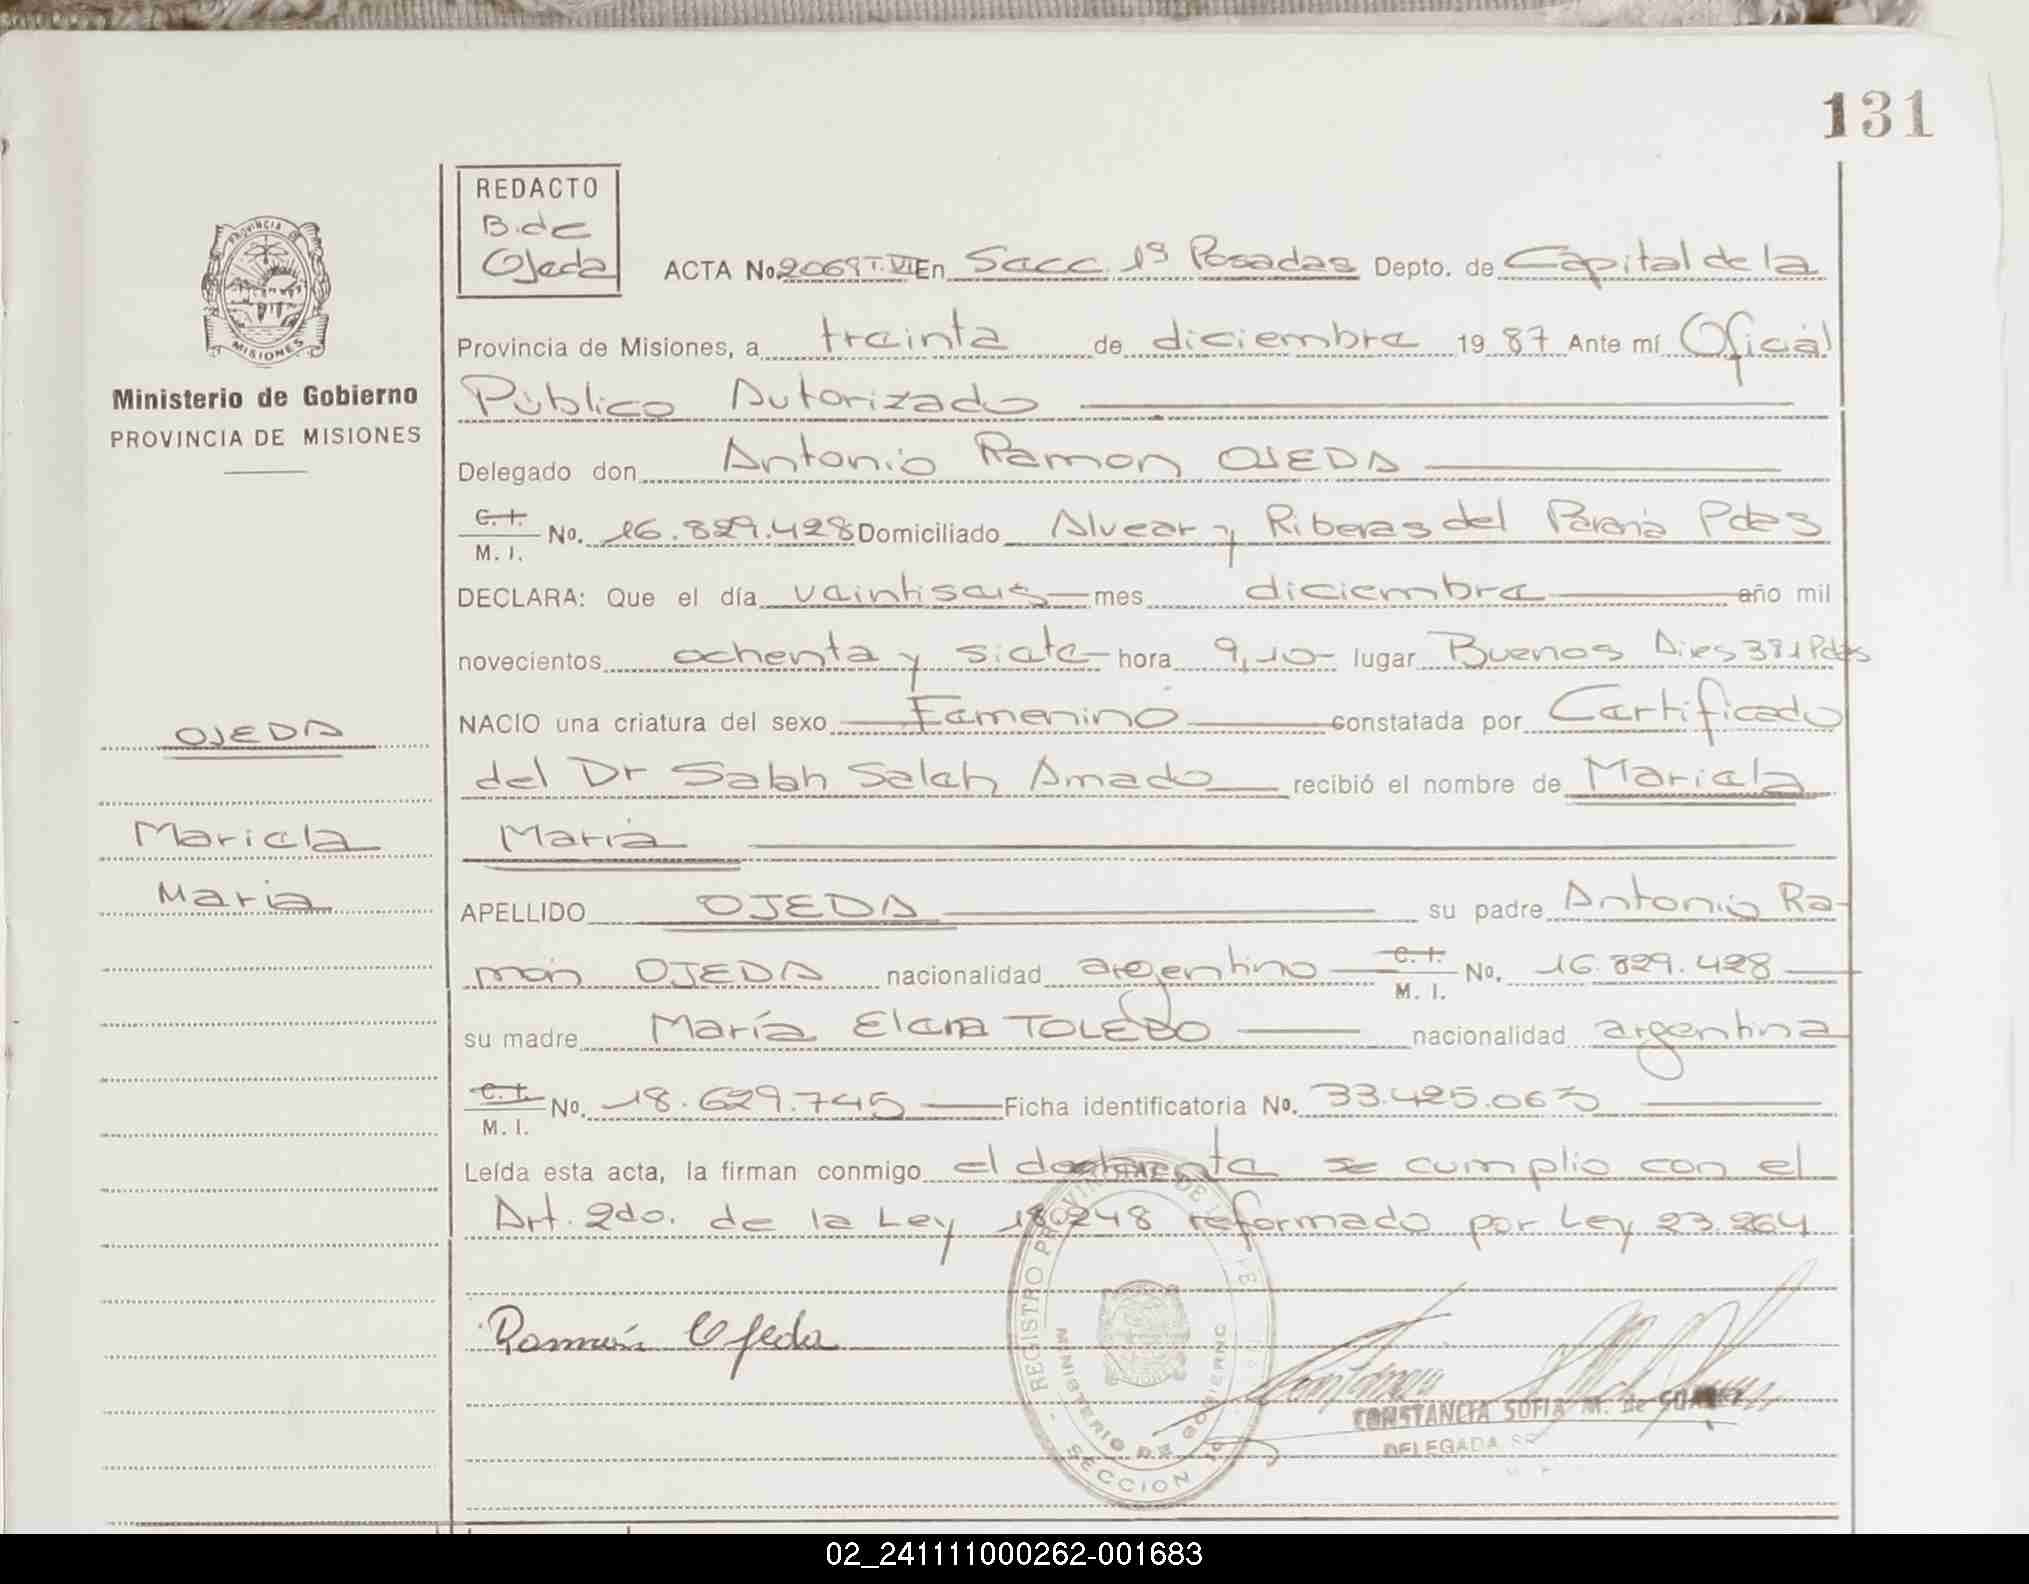 131
REDACTO
B. de
Ojeda
PROVINCIA DE
MISIONES
Ministerio de Gobierno
PROVINCIA DE MISIONES
ACTA No. 2069 T. VI En Secc. 1ª Posadas Depto. de Capital de la
Provincia de Misiones, a treinta de diciembre 19 87 Ante mí Oficial
Público Autorizado
Delegado don Antonio Ramon OJEDA
C. I.
M. I. No. 16.829.428 Domiciliado Alvear y Riberas del Paraná Pdas
DECLARA: Que el día veintiseis mes diciembre año mil
novecientos ochenta y siete hora 9,10 lugar Buenos Aires 381 Pdas
NACIO una criatura del sexo Femenino constatada por Certificado
del Dr Salah Saleh Amado recibió el nombre de Mariela
María
APELLIDO OJEDA su padre Antonio Ra-
món OJEDA nacionalidad argentino C. I. M. I. No. 16.829.428
su madre María Elena TOLEDO nacionalidad argentina
C. I.
M. I. No. 18.629.745 Ficha identificatoria No. 33.425.063
Leída esta acta, la firman conmigo el declarante se cumplio con el
Art. 2do. de la Ley 180248 reformado por Ley 23.264
OJEDA
Mariela
Maria
Ramón Ojeda
REGISTRO PROVINCIAL DE
MINISTERIO DE GOBIERNO
SECCION
CONSTANCIA SOFIA M. de
DELEGADA
02_241111000262-001683